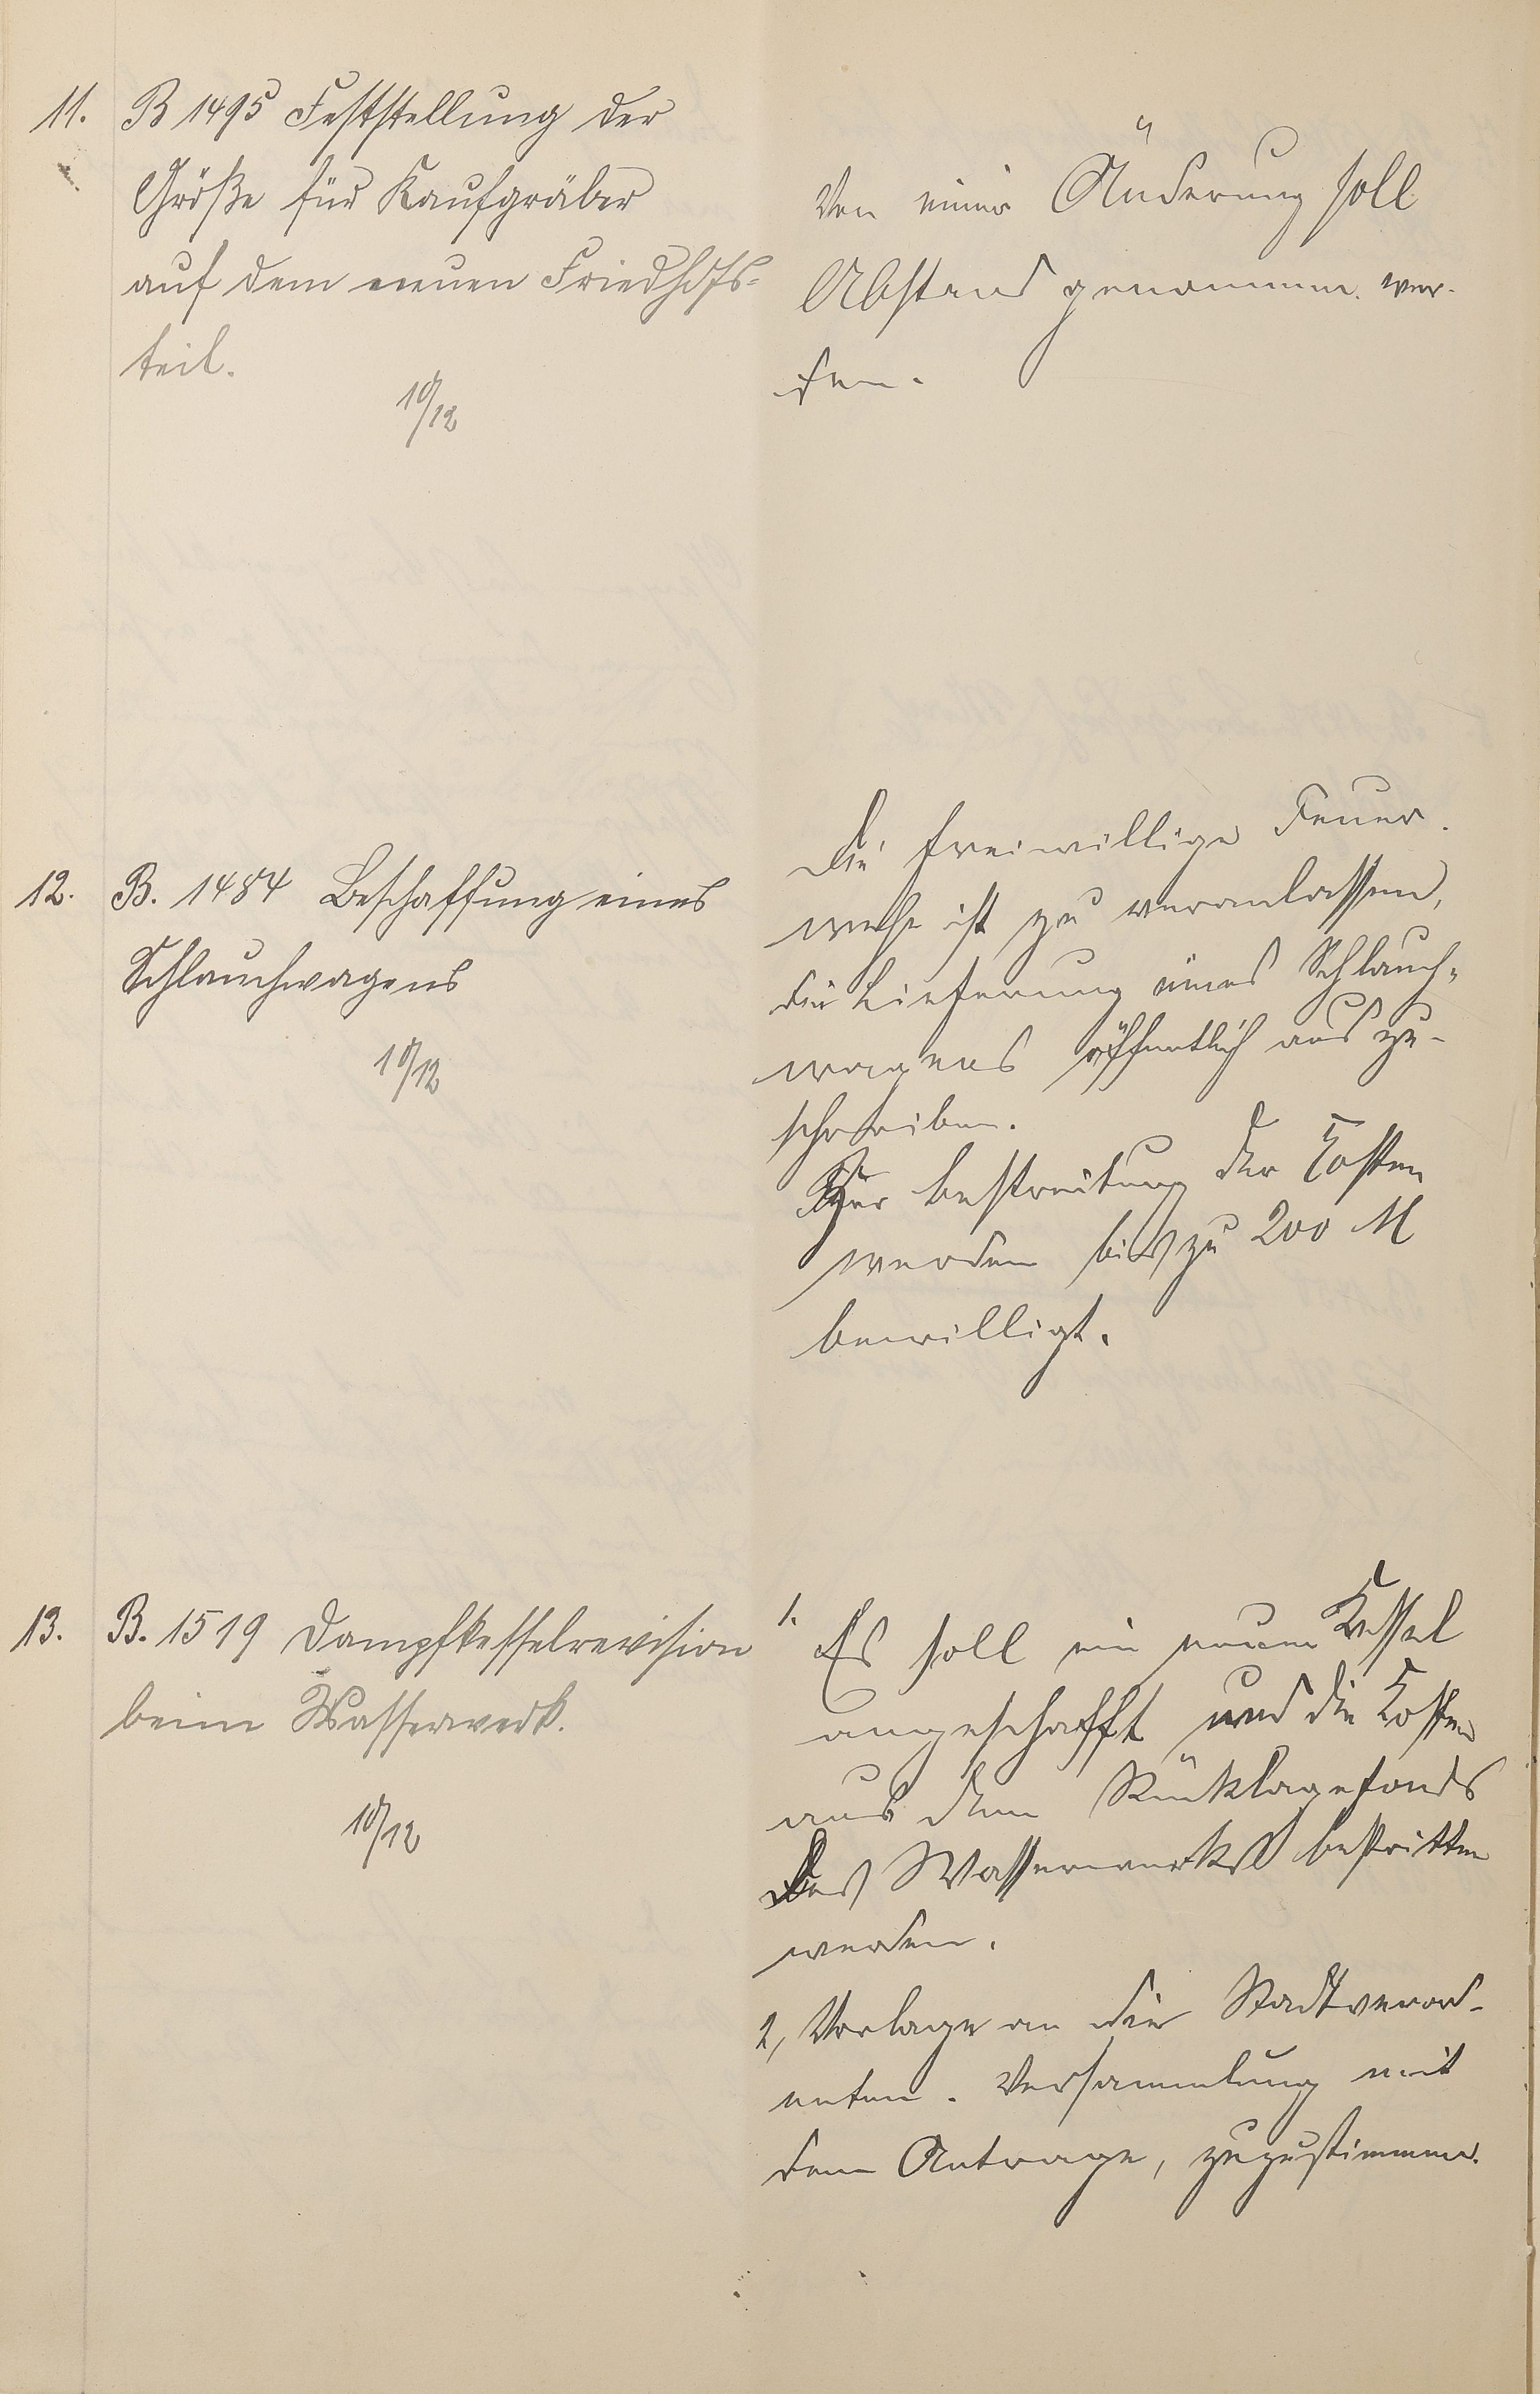 11. B 1495 Feststellung der
Größe für Kaufgräber
auf dem neuen Friedhofs-
teil.
10/12
Von einer Änderung soll
Abstand genommen wer-
den.
12. B. 1484 Beschaffung eines
Schlauchwagens
10/12
Die freiwillige Feuer-
wehr ist zu veranlassen,
die Lieferung eines Schlauch-
wagens öffentlich aus zu-
schreiben.
Zur Bestreitung der Kosten
werden bis zu 200 M
bewilligt.
13. B. 1519 Dampfkesselrevision
beim Wasserwerk.
10/12
1. Es soll ein neuer Kessel
angeschafft und die Kosten
aus dem Rücklagefonds
des Wasserwerks bestritten
werden.
2, Vorlage an die Stadtverord-
neten-Versammlung mit
dem Antrage, zuzustimmen.